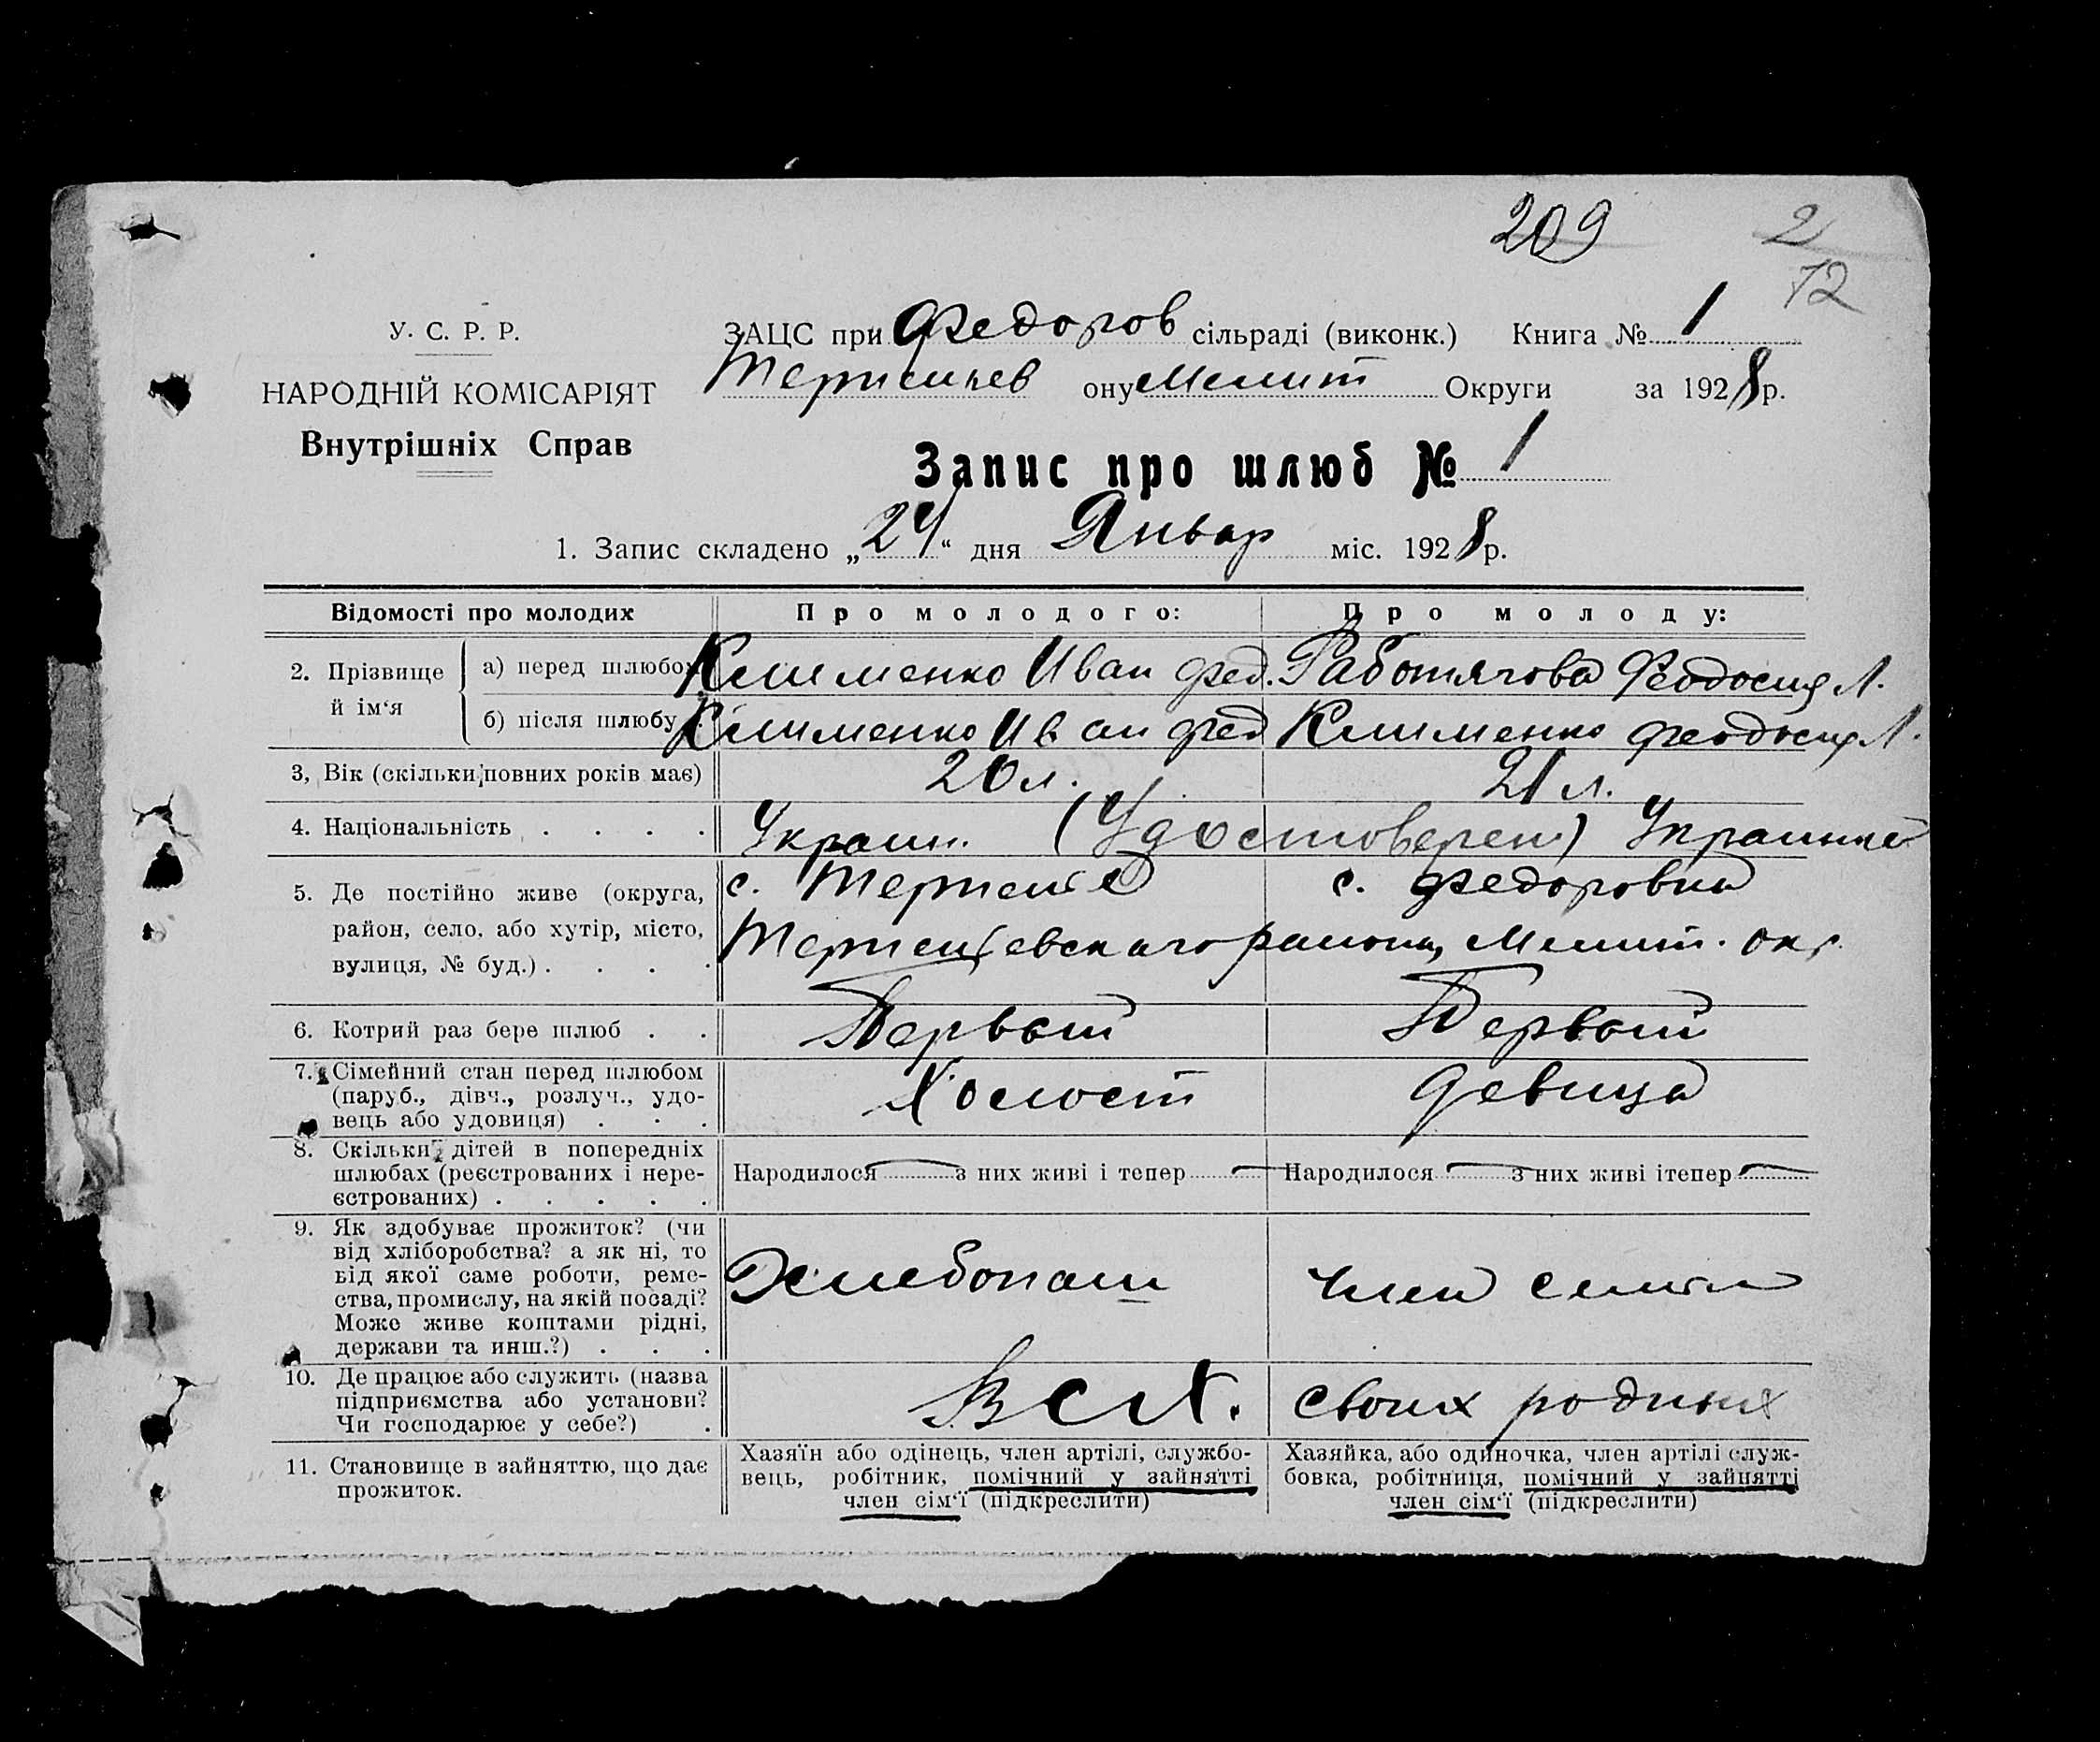 209
2
72
У. С. Р. Р.
НАРОДНІЙ КОМІСАРІЯТ
Внутрішніх Справ
ЗАЦС при Федоров сільраді (виконк.) Книга № 1
ону Мелит Округи за 1928 р.
Запис про шлюб № 1
1. Запис складено „24“ дня Январ міс. 1928 р.
Відомості про молодих
Про молодого:
Про молоду:
2. Прізвище й ім‘я
а) перед шлюбом
Клименко Иван Фед.
Работягова Феодосия Л.
б) після шлюбу
Клименко Иван Фед
Клименко Феодосия Л.
3, Вік (скільки повних років має)
20 л.
21 л.
4. Національність . . . .
Украин. (Удостоверен)
5. Де постійно живе (округа,
район, село, або хутір, місто,
вулиця, № буд.) . . . .
с. Терпение
с. Федоровка
района, Мелит. окр.
6. Котрий раз бере шлюб . .
Первый
Первый
7. Сімейний стан перед шлюбом
(паруб., дівч., розлуч., удо-
вець або удовиця) . . .
Холост
девица
8. Скільки дітей в попередніх
шлюбах (реєстрованих і нере-
єстрованих) . . . . .
Народилося — з них живі і тепер —
Народилося — з них живі ітепер —
9. Як здобуває прожиток? (чи
від хліборобства? а як ні, то
від якої саме роботи, реме-
ства, промислу, на якій посаді?
Може живе коштами рідні,
держави та инш.?) . . .
Хлебопаш
член семьи
10. Де працює або служить (назва
підприємства або установи?
Чи господарює у себе?) .
В с/х.
своих родных
11. Становище в зайняттю, що дає
прожиток.
Хазяїн або одінець, член артілі, службо-
вець, робітник, помічний у зайнятті
член сім‘ї (підкреслити)
Хазяйка, або одиночка, член артілі служ-
бовка, робітниця, помічний у зайнятті
член сім‘ї (підкреслити)